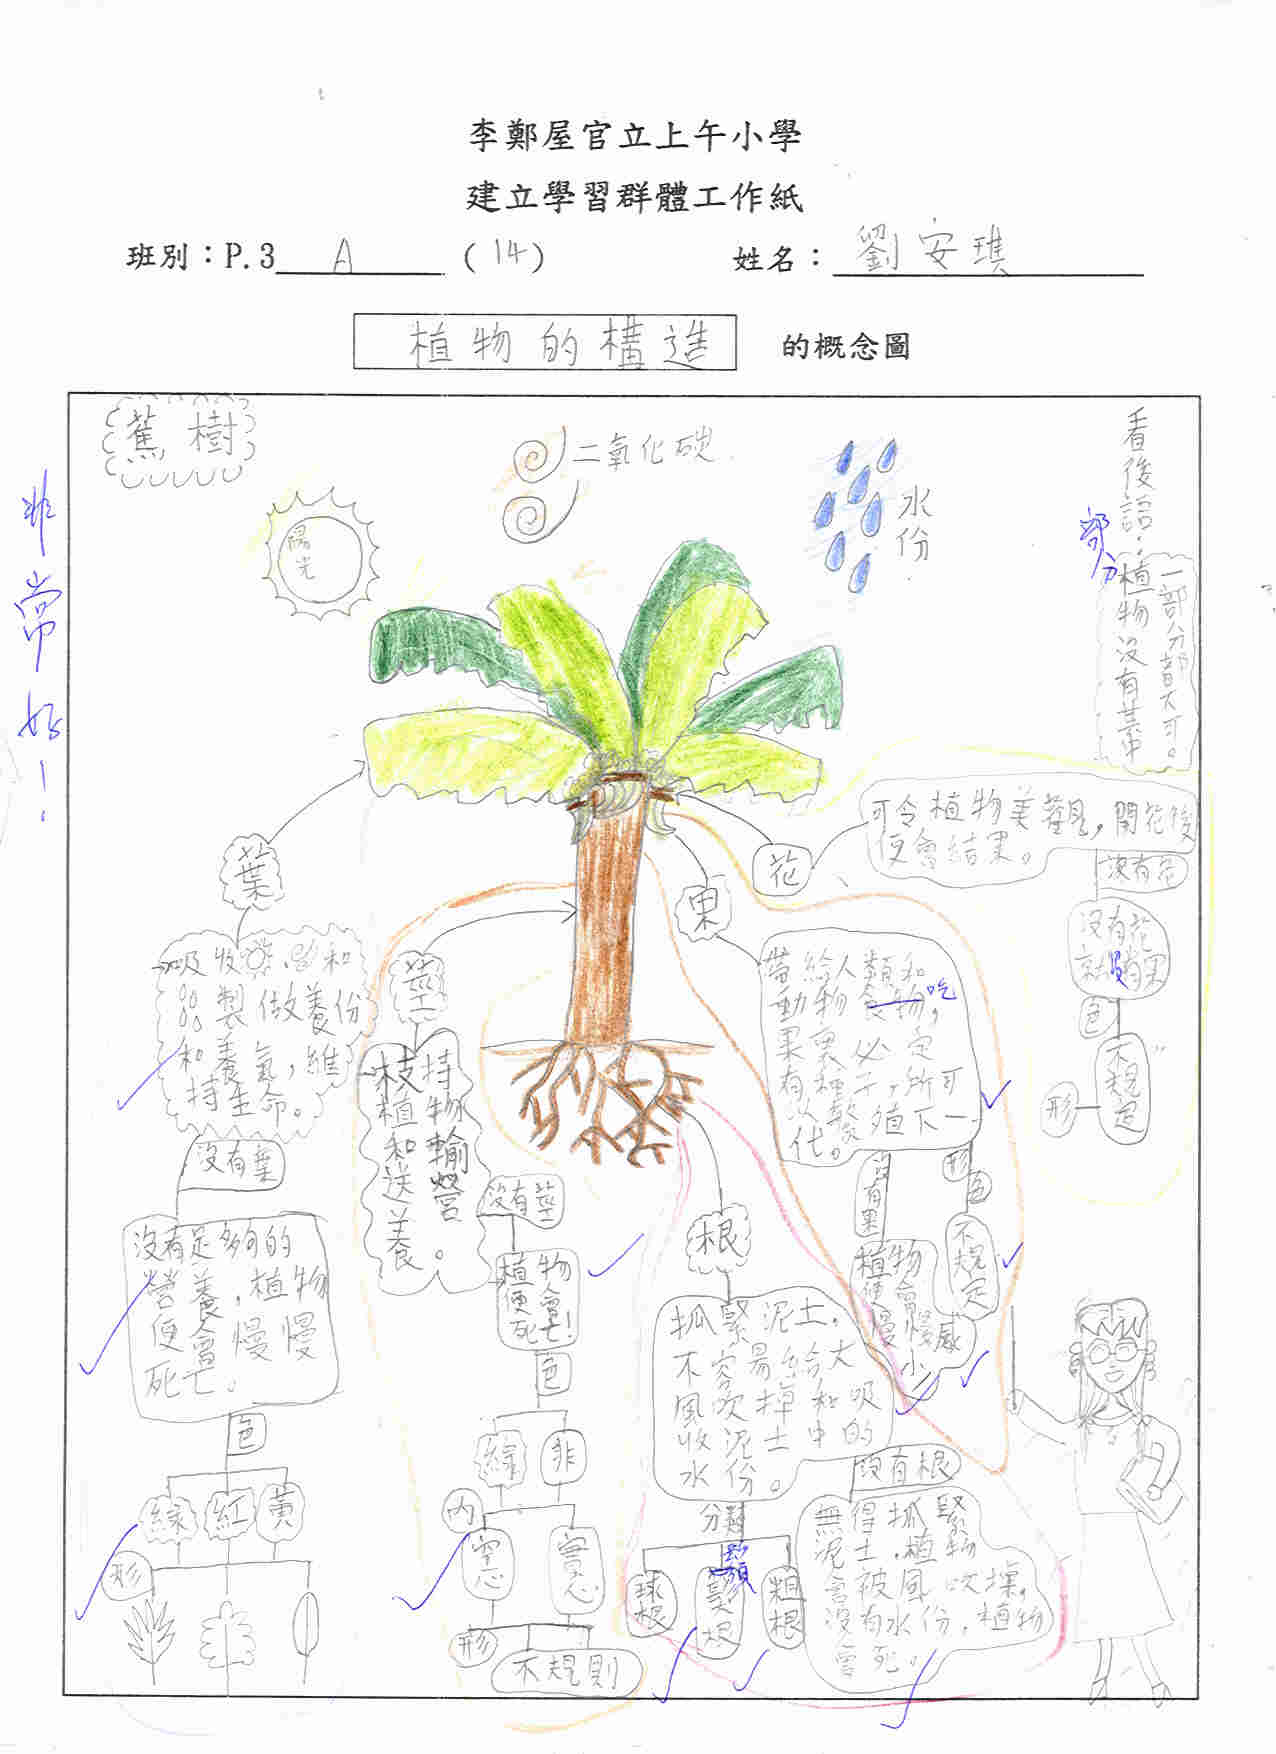 李鄭屋官立上午小學
建立學習群體工作紙
班別：P.3 A (14) 姓名：劉安琪
植物的構造 的概念圖
蕉樹
二氧化碳
水份
陽光
看後語：
植物沒有某
一部分都不可。
部分
非常好！
葉
吸收、和
製做養份
和養氣，維
持生命。
沒有葉
沒有足夠的
營養，植物
便會慢慢
死亡。
色
綠 紅 黃
形
莖
枝持
植物
和輸
送營
養。
沒有莖
植物
便會
死亡！
色
綠 非
內
空心 實心
形
不規則
花
可令植物美觀，開花後
便會結果。
沒有花
沒有花
就沒有果
色
形
不規定
果
帶給人類和
動物食物，
吃
果裏必定
有種子，所
以繁殖下一
代。
沒有果
植物
便會
慢慢減
少
形
色
不規定
根
抓緊泥土，
不容易給大
風吹掉和吸
收泥土中的
水份。
分類
球根 根 粗根
鬚
沒有根
無得抓緊
泥土，植物
會被風吹壞，
沒有水份，植物
會死。